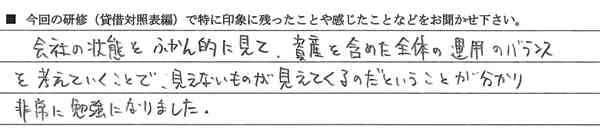 ■ 今回の研修（貸借対照表編）で特に印象に残ったことや感じたことなどをお聞かせ下さい。
会社の状態をふかん的に見て、資産を含めた全体の運用のバランス
を考えていくことで、見えないものが見えてくるのだということが分かり
非常に勉強になりました。